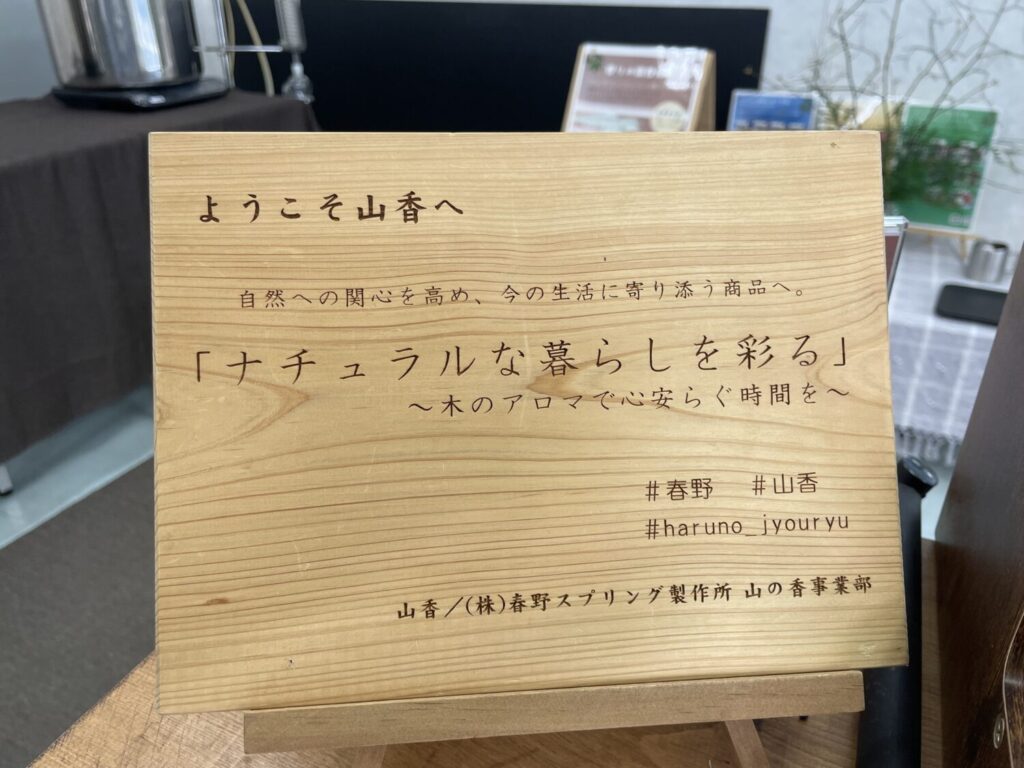 ようこそ山香へ
自然への関心を高め、今の生活に寄り添う商品へ。
「ナチュラルな暮らしを彩る」
～木のアロマで心安らぐ時間を～
#春野 #山香
#haruno_jyouryu
山香／(株)春野スプリング製作所 山の香事業部